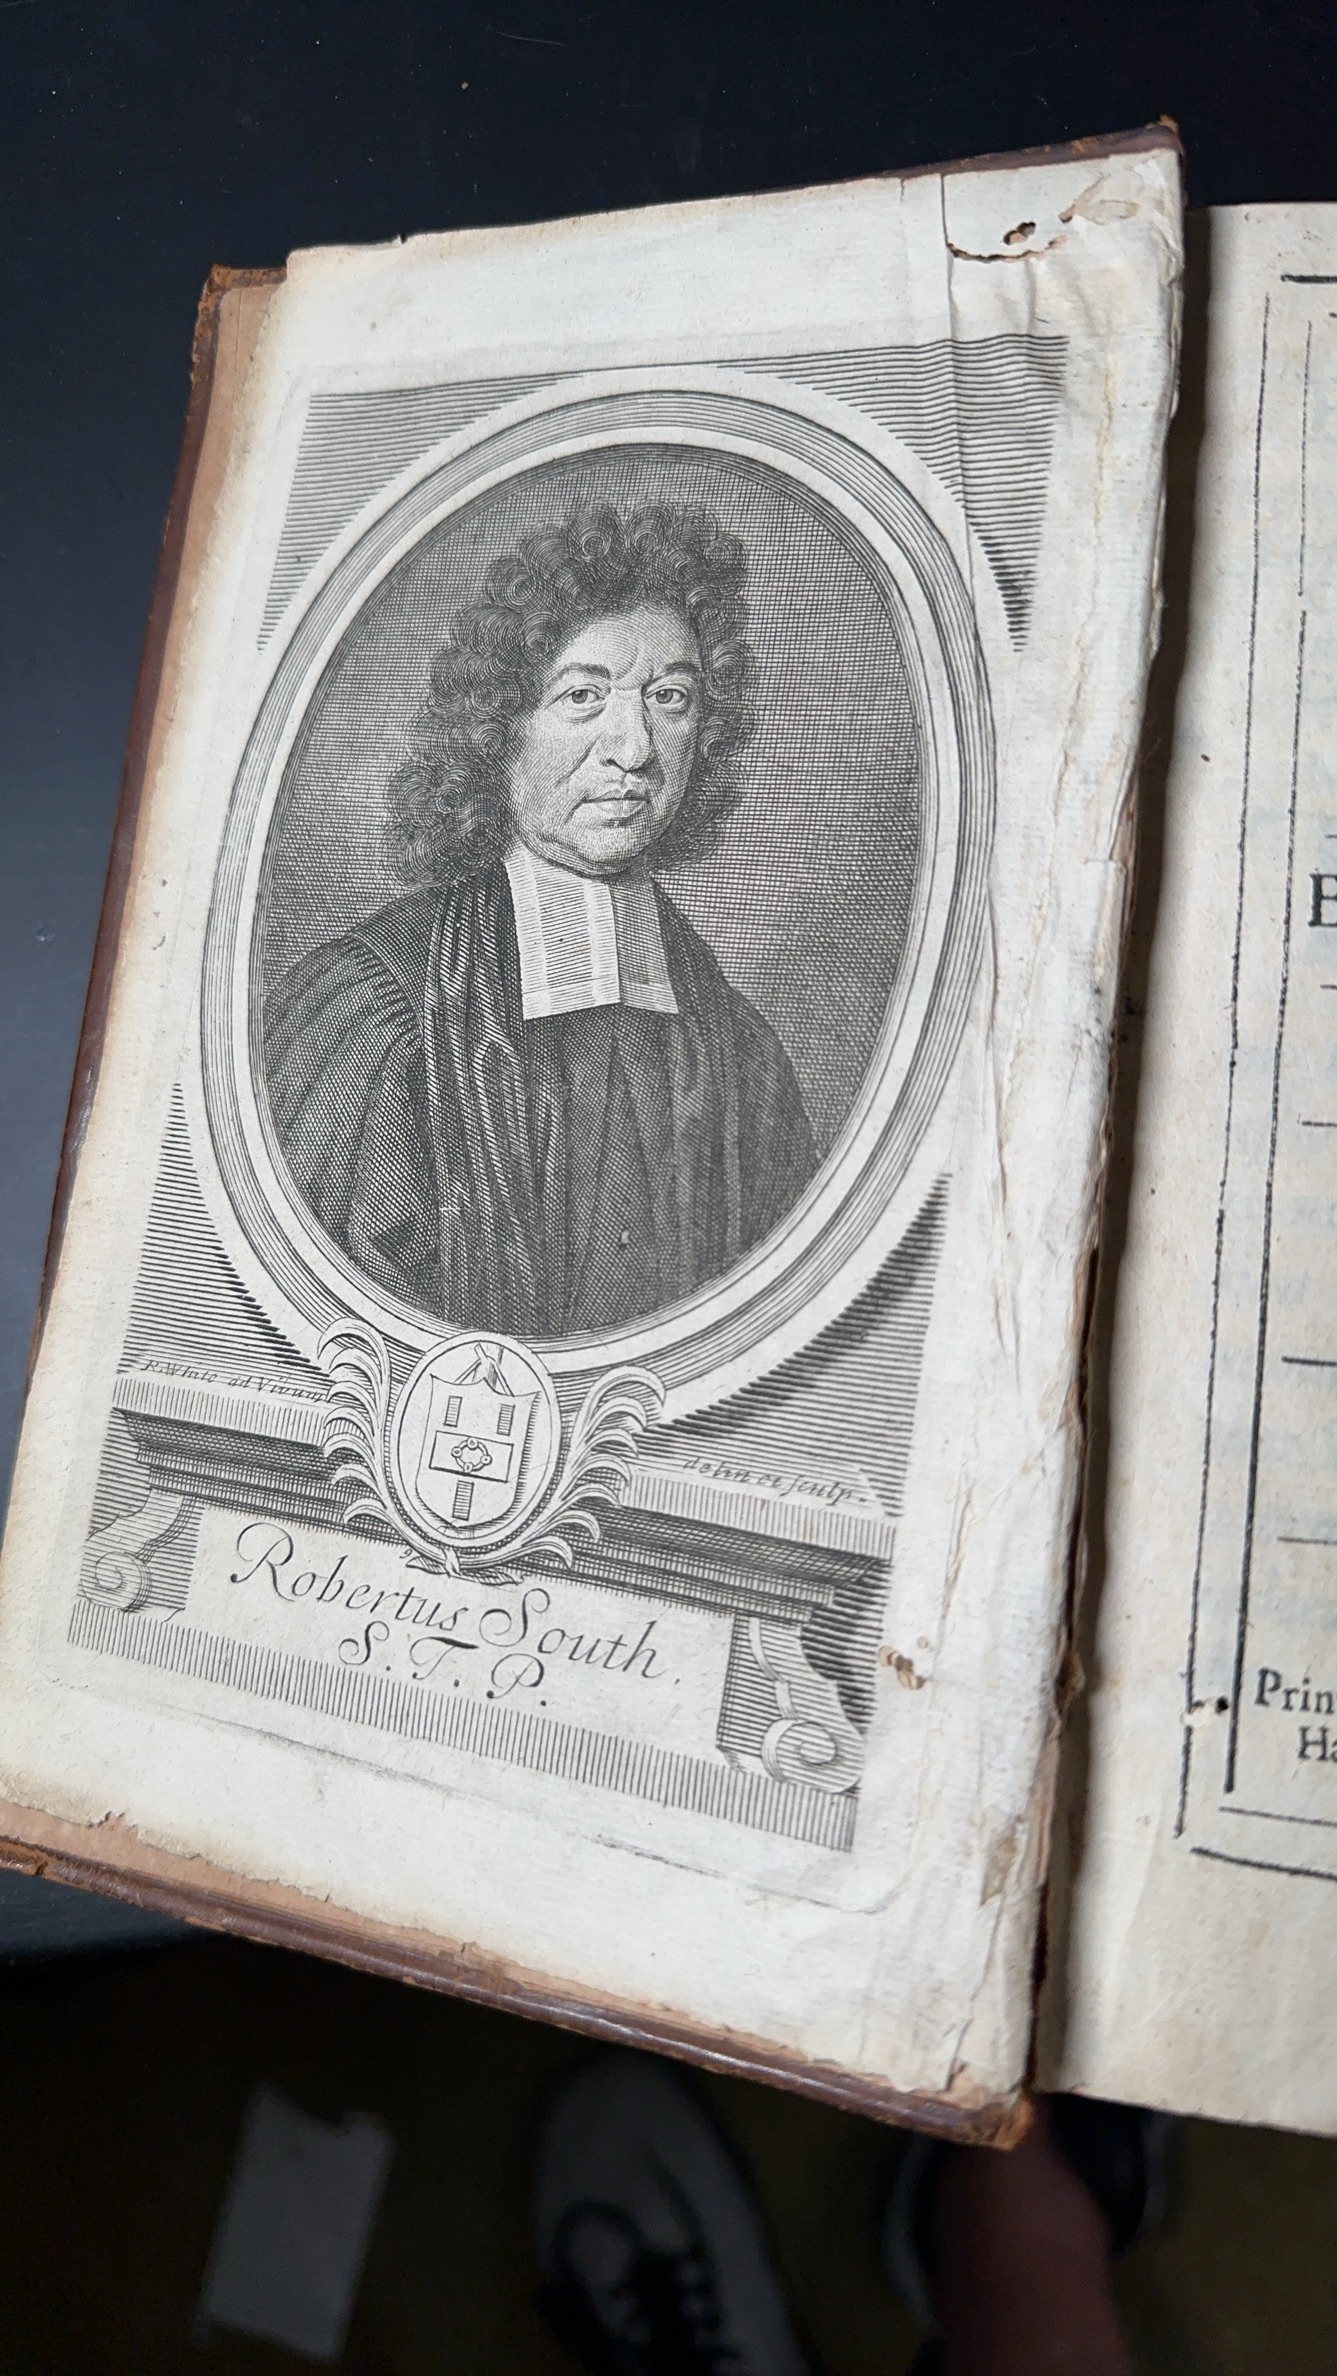 R. White ad Vivum
delin et sculp.
Robertus South.
S. T. P.
Prin
Ha